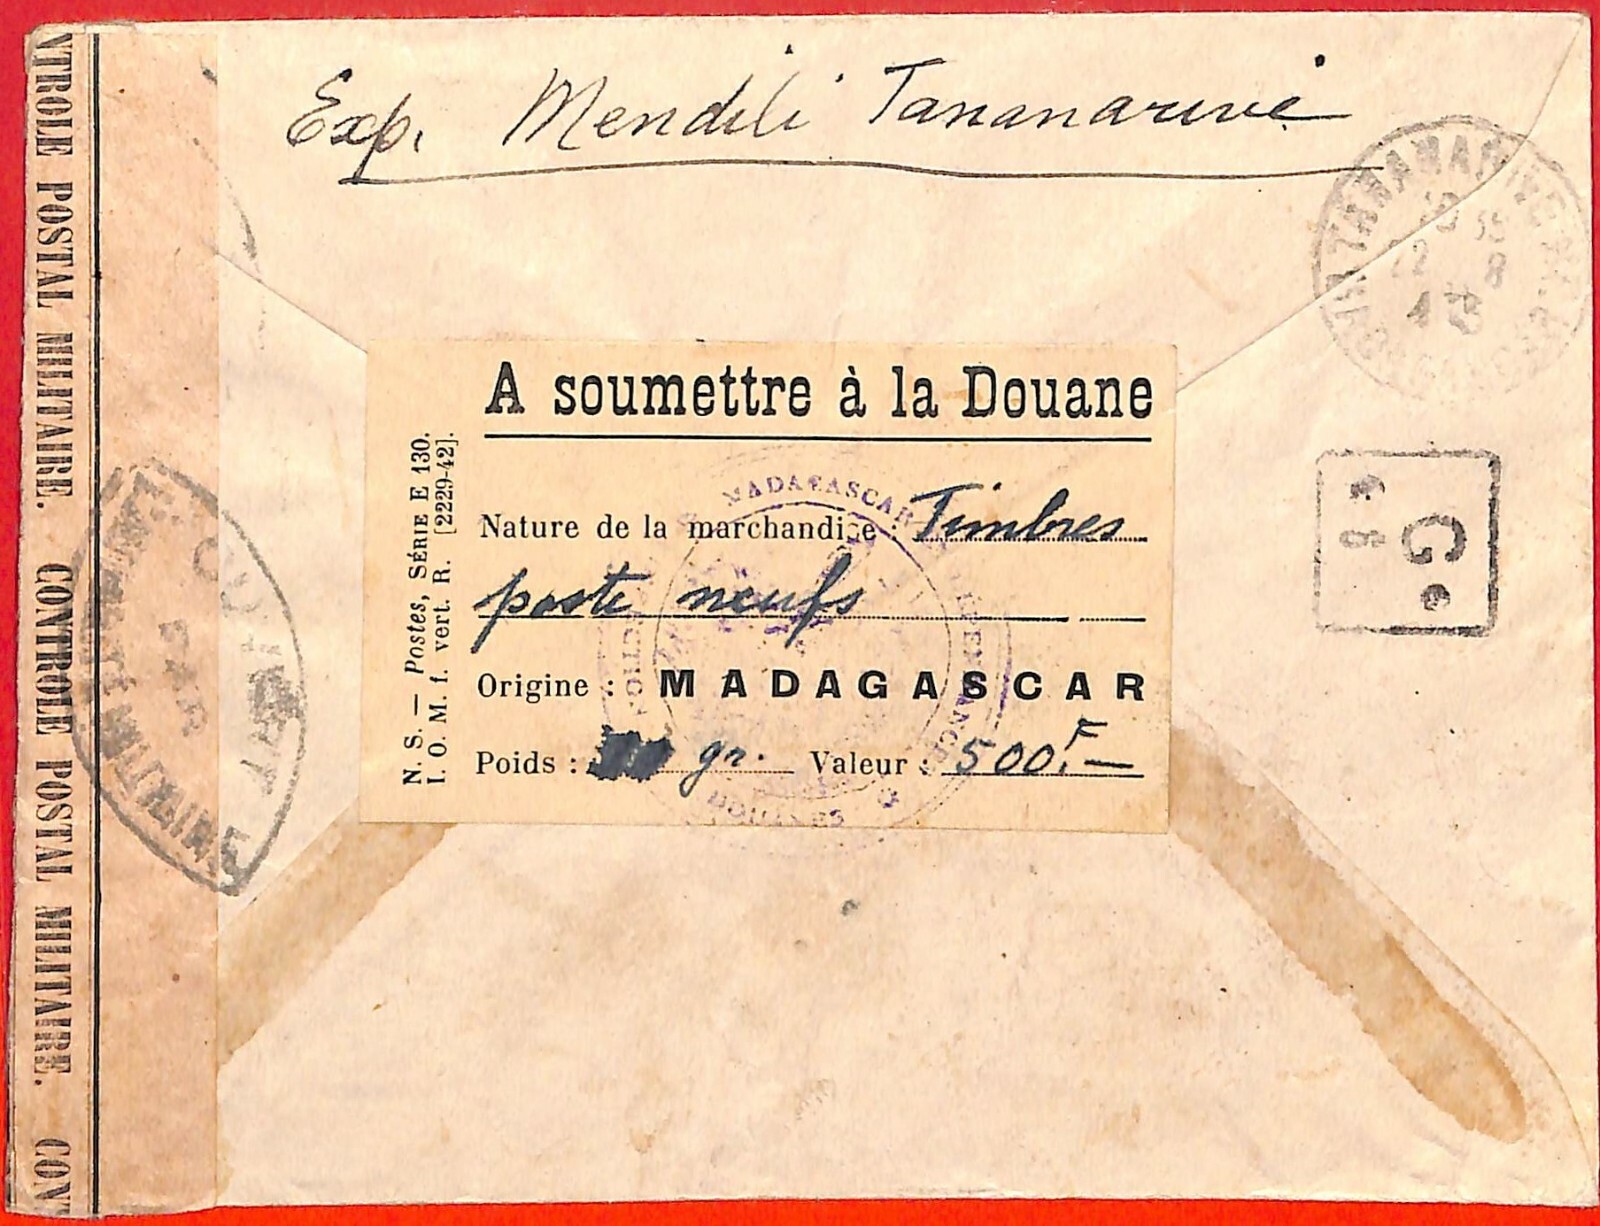 Exp. Mendili Tananarive
A soumettre à la Douane
Nature de la marchandise : Timbres
poste neufs
Origine : MADAGASCAR
Poids : gr. Valeur : 500F.—
N. S. — Postes, SÉRIE E 130.
I. O. M. f. vert. R. [2229-42].
NTROLE POSTAL MILITAIRE. CONTROLE POSTAL MILITAIRE. CON
OUVERT
PAR
MILITAIRE
TANANARIVE
22 8
43
MADAGASCAR
DOUANES
G